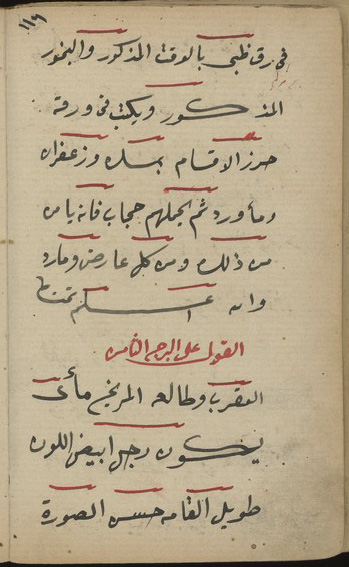 ١١٩
فى رق ظبى بالوقت المذكور والبخور
المذكور ويكتب فى ورقة
حرز الاقسام بمسك وزعفران
وماورد ثم يحملهم حجاب فانه يامن
من ذلك ومن كل عارض ومارد
والله اعلم تمت
القول على البرج الثامن
العقرب وطالعه المريخ مائى
يكون رجل ابيض اللون
طويل القامه حسن الصورة